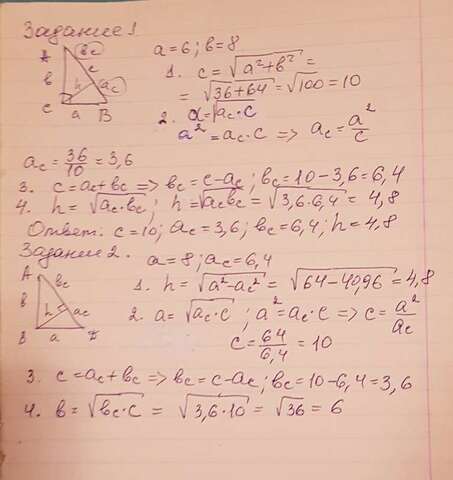 Задание 1
A
b
c
h
C
a
B
bc
ac
a=6; b=8
1. c = √(a²+b²) =
= √(36+64) = √100 = 10
2. a = √(ac·c)
a² = ac·c => ac = a²/c
ac = 36/10 = 3,6
3. c = ac + bc => bc = c - ac; bc = 10 - 3,6 = 6,4
4. h = √(ac·bc); h = √(ac bc) = √(3,6·6,4) = 4,8
Ответ: c=10; ac=3,6; bc=6,4; h=4,8
Задание 2.
A
bc
b
h
ac
a
a=8; ac=6,4
1. h = √(a²-ac²) = √(64-40,96) = 4,8
2. a = √(ac·c); a² = ac·c => c = a²/ac
c = 64/6,4 = 10
3. c = ac + bc => bc = c - ac; bc = 10 - 6,4 = 3,6
4. b = √(bc·c) = √(3,6·10) = √36 = 6